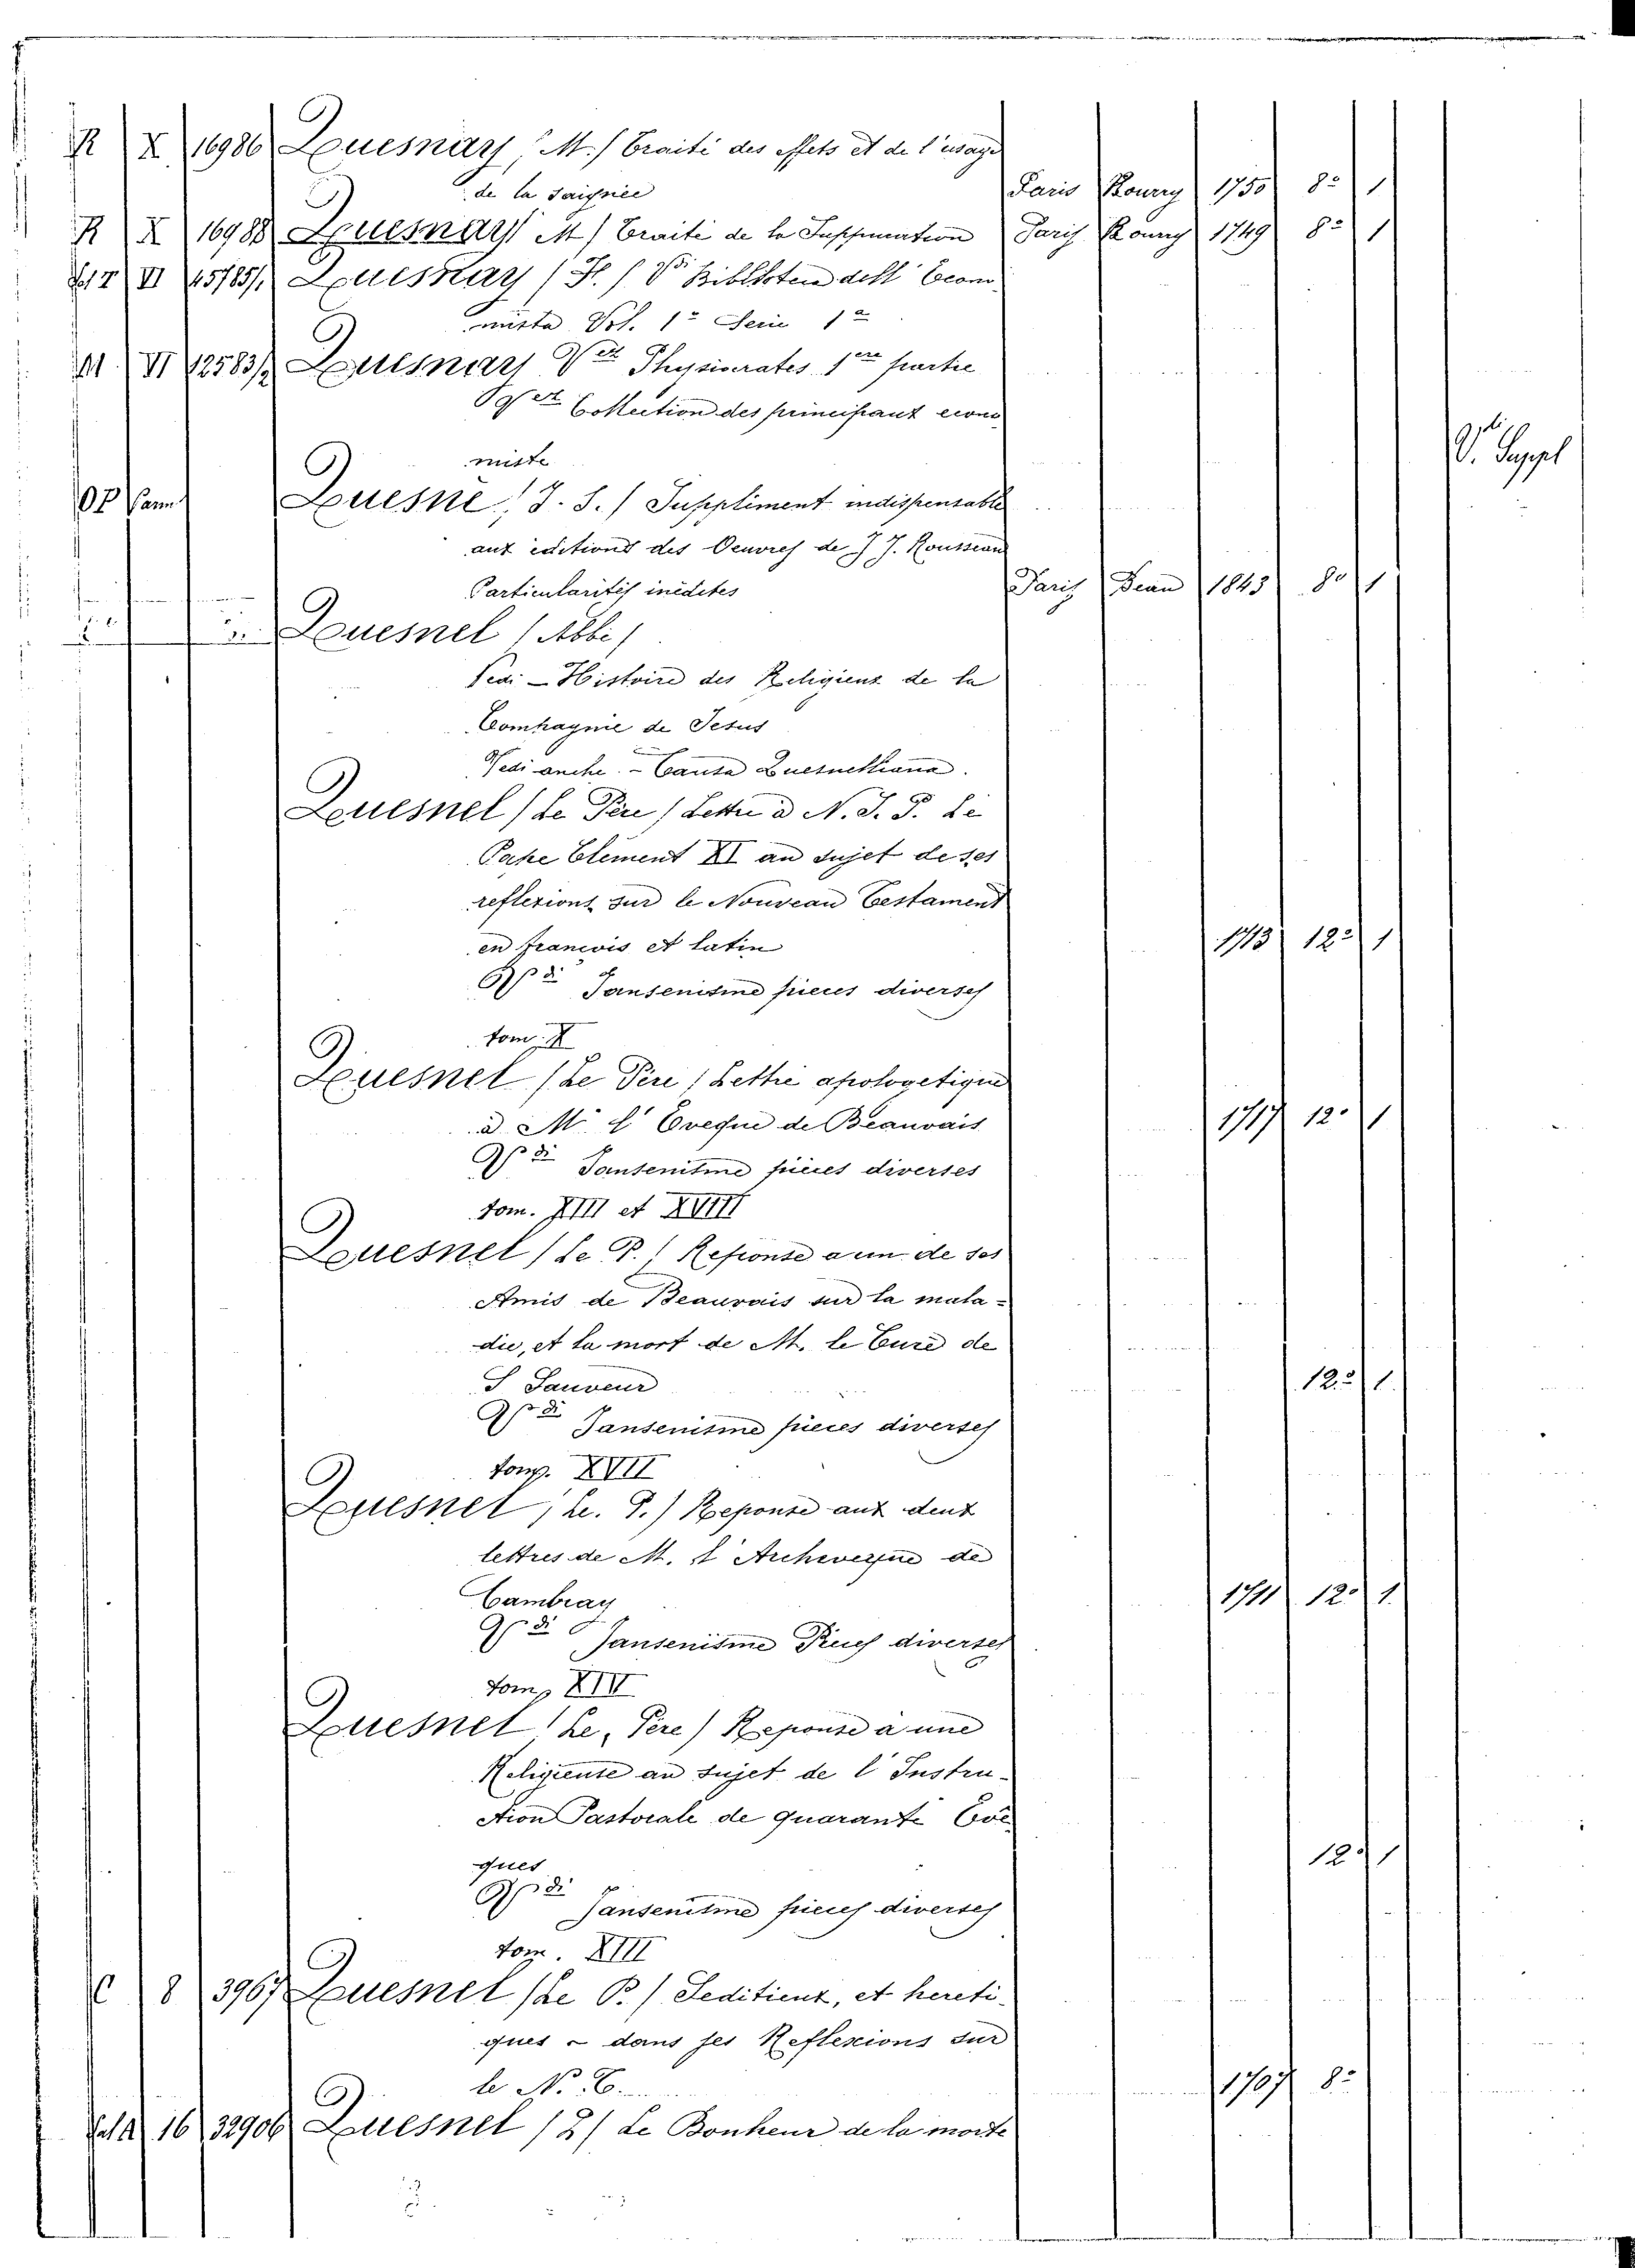 R X 16986 Quesnay, M. / Traité des effets et de l'usage
de la saignée Paris Rourry 1750 8° 1
R X 16988 Quesnay M / Traité de la Suppuration Paris Rourry 1749 8° 1
VI 45785/1 Quesnay (F. / Vdi Biblioteca dell' Econo
mista Vol. 1° Serie 1a
VI 12583/2 Quesnay Vet Physiocrates 1ere partie
Vet Collection des principaux econo
miste
V. Suppl
Quesne, J. S. / Suppliment indispensable
aux editions des Oeuvres de J J. Rousseau
Particularités inédites Paris 1843 8° 1
Quesnel / Abbé /
Vedi - Histoire des Religieux de la
Compagnie de Jesus
Vedi anche - Causa Quesnelliana.
Quesnel / le Père / Lettre à N. S. P. le
Pape Clement XI au sujet de ses
reflexions sur le Nouveau Testament
en francois et latin 1713 12° 1
Vdi Jansenisme pieces diverses
tom. X
Quesnel / Le Père / Lettre apologetique
à M. l' Eveque de Beauvais 1717 12° 1
Vdi Jansenisme pieces diverses
tom. XIII et XVIII
Quesnel / le P. / Reponse a un de ses
Amis de Beauvais sur la mala-
die, et la mort de M. le Curé de
S Sauveur 12° 1
Vdi Jansenisme pieces diverses
tom. XVII
Quesnel, le. P. / Reponse aux deux
lettres de M. l' Archeveque de
Cambray 1711 12° 1
Vdi Jansenisme Pieces diverses
tom. XIV
Quesnel / Le, Père / Reponse a une
Religieuse au sujet de l' Instru-
ction Pastorale de quarante Evê
ques 12° 1
Vdi Jansenisme pieces diverses
tom. XIII
8 3967 Quesnel / le P. / Seditieux, et hereti-
ques - dans ses Reflexions sur
le N. T. 1707 8°
16 32906 Quesnel / P / Le Bonheur de la morte